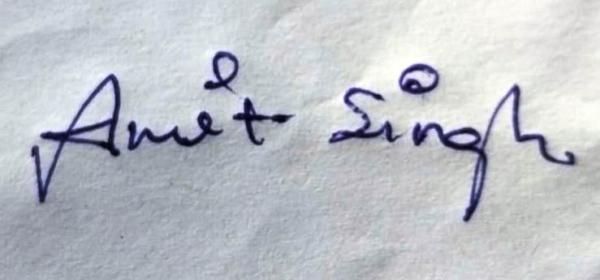 Amit Singh